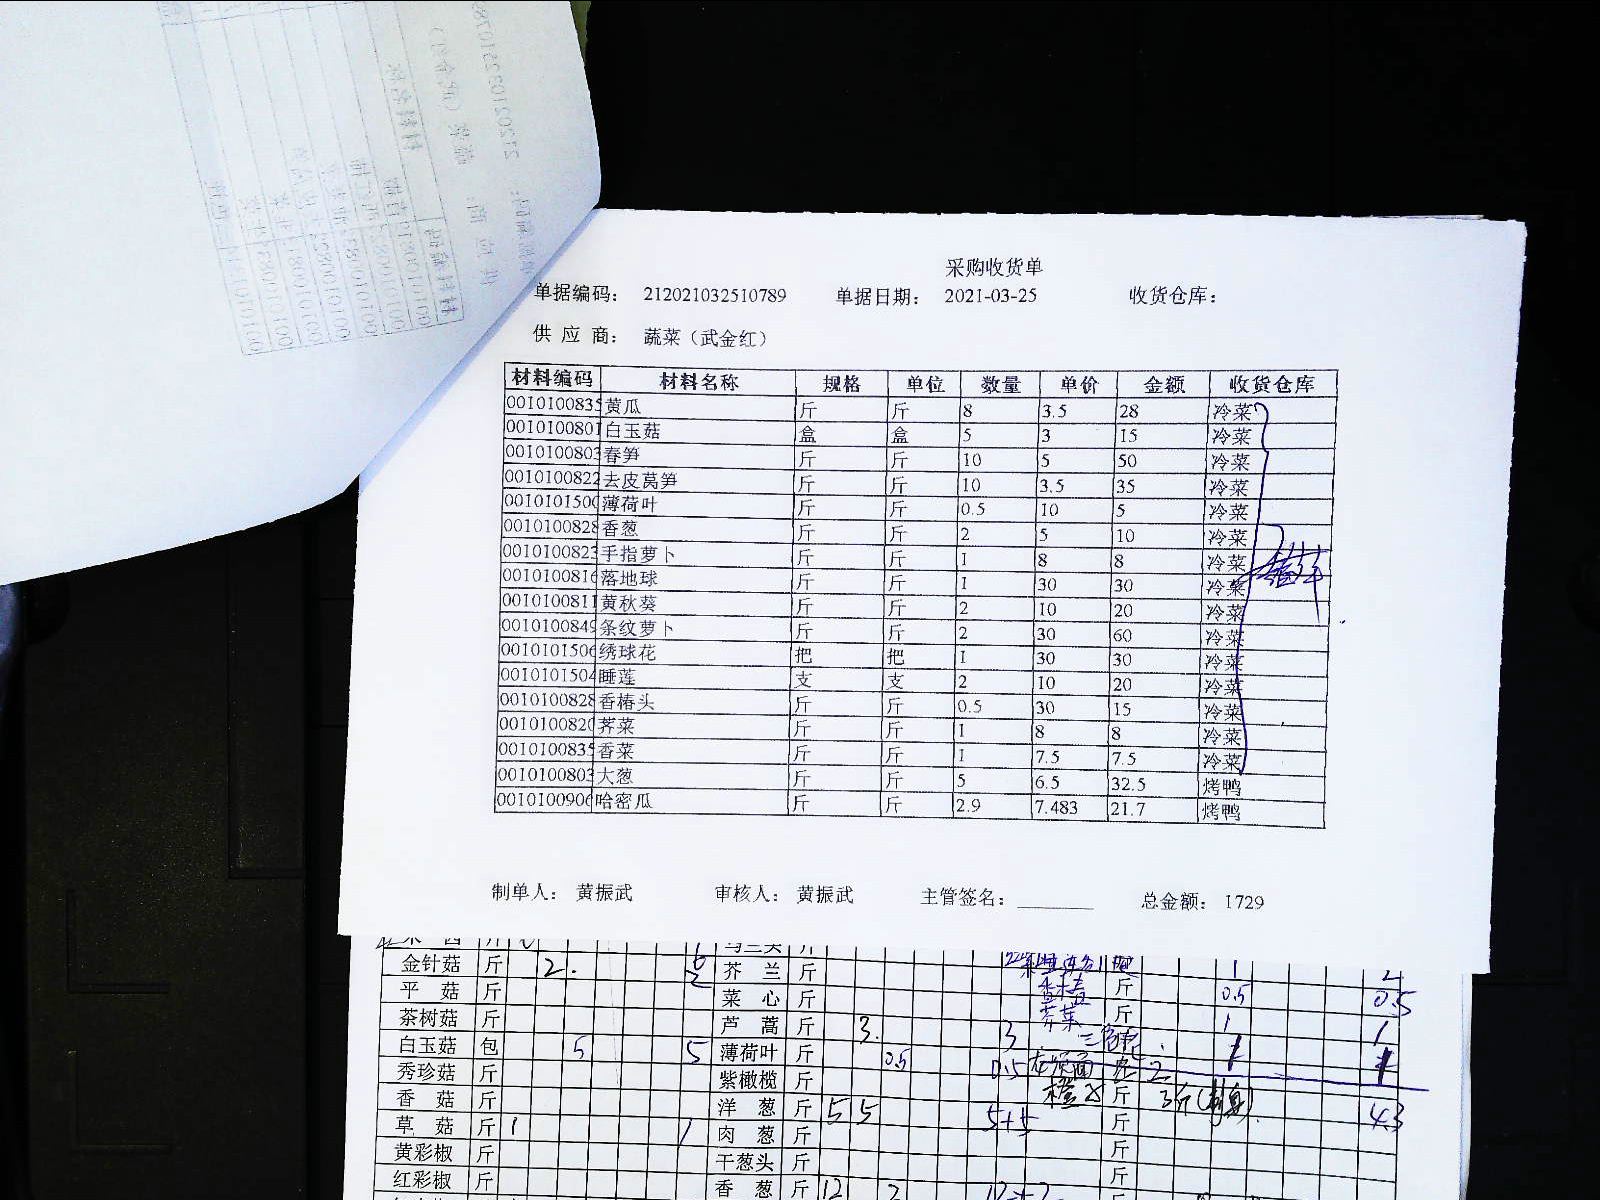 采购收货单
单据编码： 212021032510789 单据日期： 2021-03-25 收货仓库：
供 应 商： 蔬菜（武金红）
材料编码 材料名称 规格 单位 数量 单价 金额 收货仓库
0010100835 黄瓜 斤 斤 8 3.5 28 冷菜
0010100801 白玉菇 盒 盒 5 3 15 冷菜
0010100803 春笋 斤 斤 10 5 50 冷菜
0010100822 去皮莴笋 斤 斤 10 3.5 35 冷菜
001010150 薄荷叶 斤 斤 0.5 10 5 冷菜
0010100828 香葱 斤 斤 2 5 10 冷菜
0010100823 手指萝卜 斤 斤 1 8 8 冷菜
0010100816 落地球 斤 斤 1 30 30 冷菜
0010100811 黄秋葵 斤 斤 2 10 20 冷菜
0010100849 条纹萝卜 斤 斤 2 30 60 冷菜
0010101506 绣球花 把 把 1 30 30 冷菜
0010101504 睡莲 支 支 2 10 20 冷菜
0010100828 香椿头 斤 斤 0.5 30 15 冷菜
0010100820 荠菜 斤 斤 1 8 8 冷菜
0010100835 香菜 斤 斤 1 7.5 7.5 冷菜
0010100803 大葱 斤 斤 5 6.5 32.5 烤鸭
0010100906 哈密瓜 斤 斤 2.9 7.483 21.7 烤鸭
制单人： 黄振武 审核人： 黄振武 主管签名： 总金额： 1729
金针菇 斤 2. 芥 兰 斤 1
平 菇 斤 菜 心 斤 斤 0.5 0.5
茶树菇 斤 芦 蒿 斤 3. 3 荠菜 斤 1 1
白玉菇 包 5 5 薄荷叶 斤 0.5 0.5
秀珍菇 斤 紫橄榄 斤
香 菇 斤 洋 葱 斤 5 5 5+5 斤 4.3
草 菇 斤 1 1 肉 葱 斤 斤
黄彩椒 斤 干葱头 斤 斤
红彩椒 斤 香 葱 斤 12 2 12+2